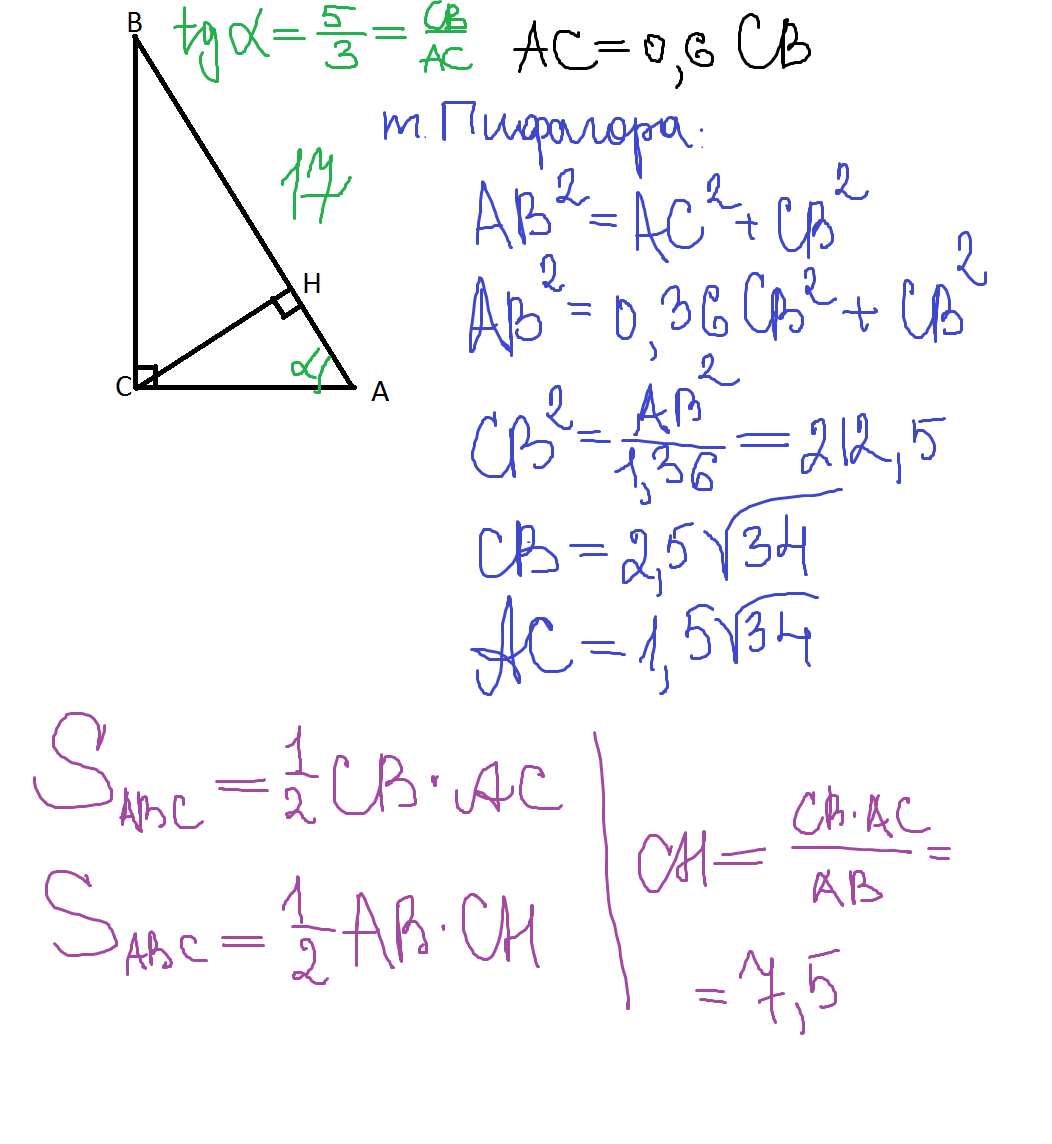 B
tg α = 5/3 = CB/AC
AC = 0,6 CB
т. Пифагора:
17
AB² = AC² + CB²
H
AB² = 0,36 CB² + CB²
α
C
A
CB² = AB²/1,36 = 212,5
CB = 2,5√34
AC = 1,5√34
S ABC = 1/2 CB · AC
S ABC = 1/2 AB · CH
CH = CB · AC/AB =
= 7,5